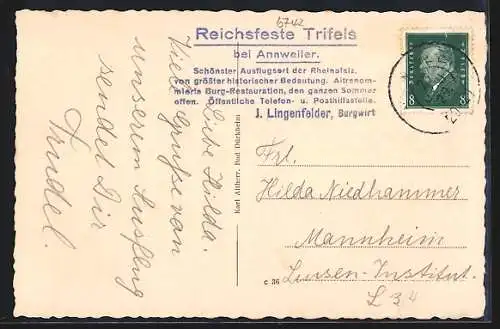 6742
Reichsfeste Trifels
bei Annweiler.
Schönster Ausflugsort der Rheinpfalz,
von größter historischer Bedeutung. Altrenom-
mierte Burg-Restauration, den ganzen Sommer
offen. Öffentliche Telefon- u. Posthilfsstelle.
J. Lingenfelder, Burgwirt
Liebe Hilda.
Viele Grüße von
unserem Ausflug
sendet Dir
Trudel.
Karl Altherr, Bad Dürkheim
c 36
8 8
Frl.
Hilda Niedhammer
Mannheim
Luisen-Institut.
L 3 4